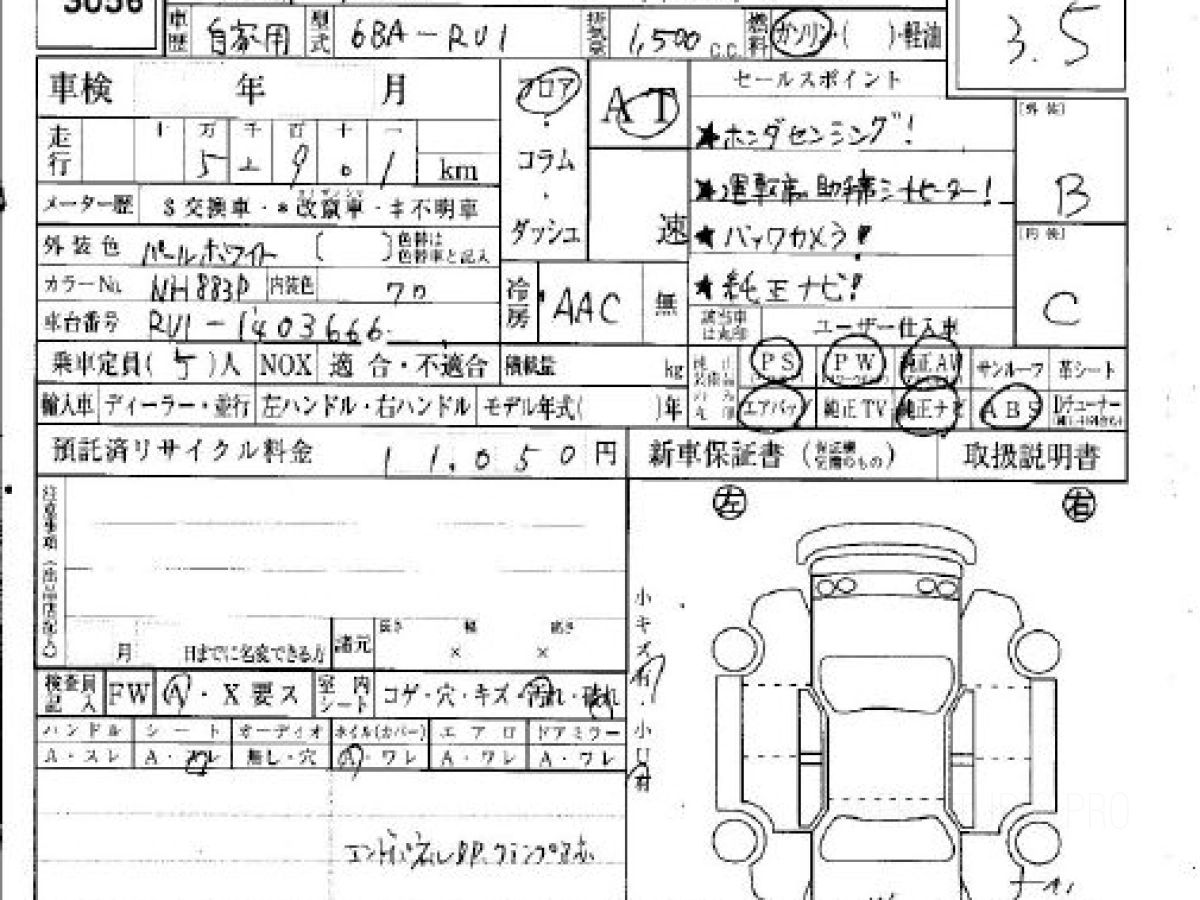 3056
車歴 自家用 型式 6BA-RU1 排気量 1,500 c.c. 燃料 ガソリン・( )・軽油
3.5
車検 年 月 フロア AT セールスポイント
[外装]
B
走行 十 万 千 百 十 一 km
・コラム
★ホンダセンシング!
★運転席助手席シートヒーター!
メーター歴 $交換車・*改竄車・♯不明車
・ダッシュ 速
★バックカメラ!
[内装]
C
外装色 パールホワイト ( ) 色替は色替車と記入
カラーNo. NH883P 内装色 クロ
冷房 AAC 無
★純正ナビ!
車台番号 RU1-1403666
該当車は丸印 ユーザー仕入車
乗車定員(5)人 NOX 適合・不適合 積載量 kg
PS PW 純正AV サンルーフ 革シート
輸入車 ディーラー・並行 左ハンドル・右ハンドル モデル年式( )年
エアバック 純正TV 純正ナビ ABS
預託済リサイクル料金 11,050円
新車保証書 取扱説明書
左 右
注意事項
月 日までに名変できる方 諸元 長さ × 幅 × 高さ
小キズ有・小凹有
検査員記入 FW A・X要ス 室内シート コゲ・穴・キズ・汚れ・破れ
ハンドル シート オーディオ ホイル(カバー) エアロ ドアミラー
A・スレ A・ワレ 無し・穴 A・ワレ A・ワレ A・ワレ